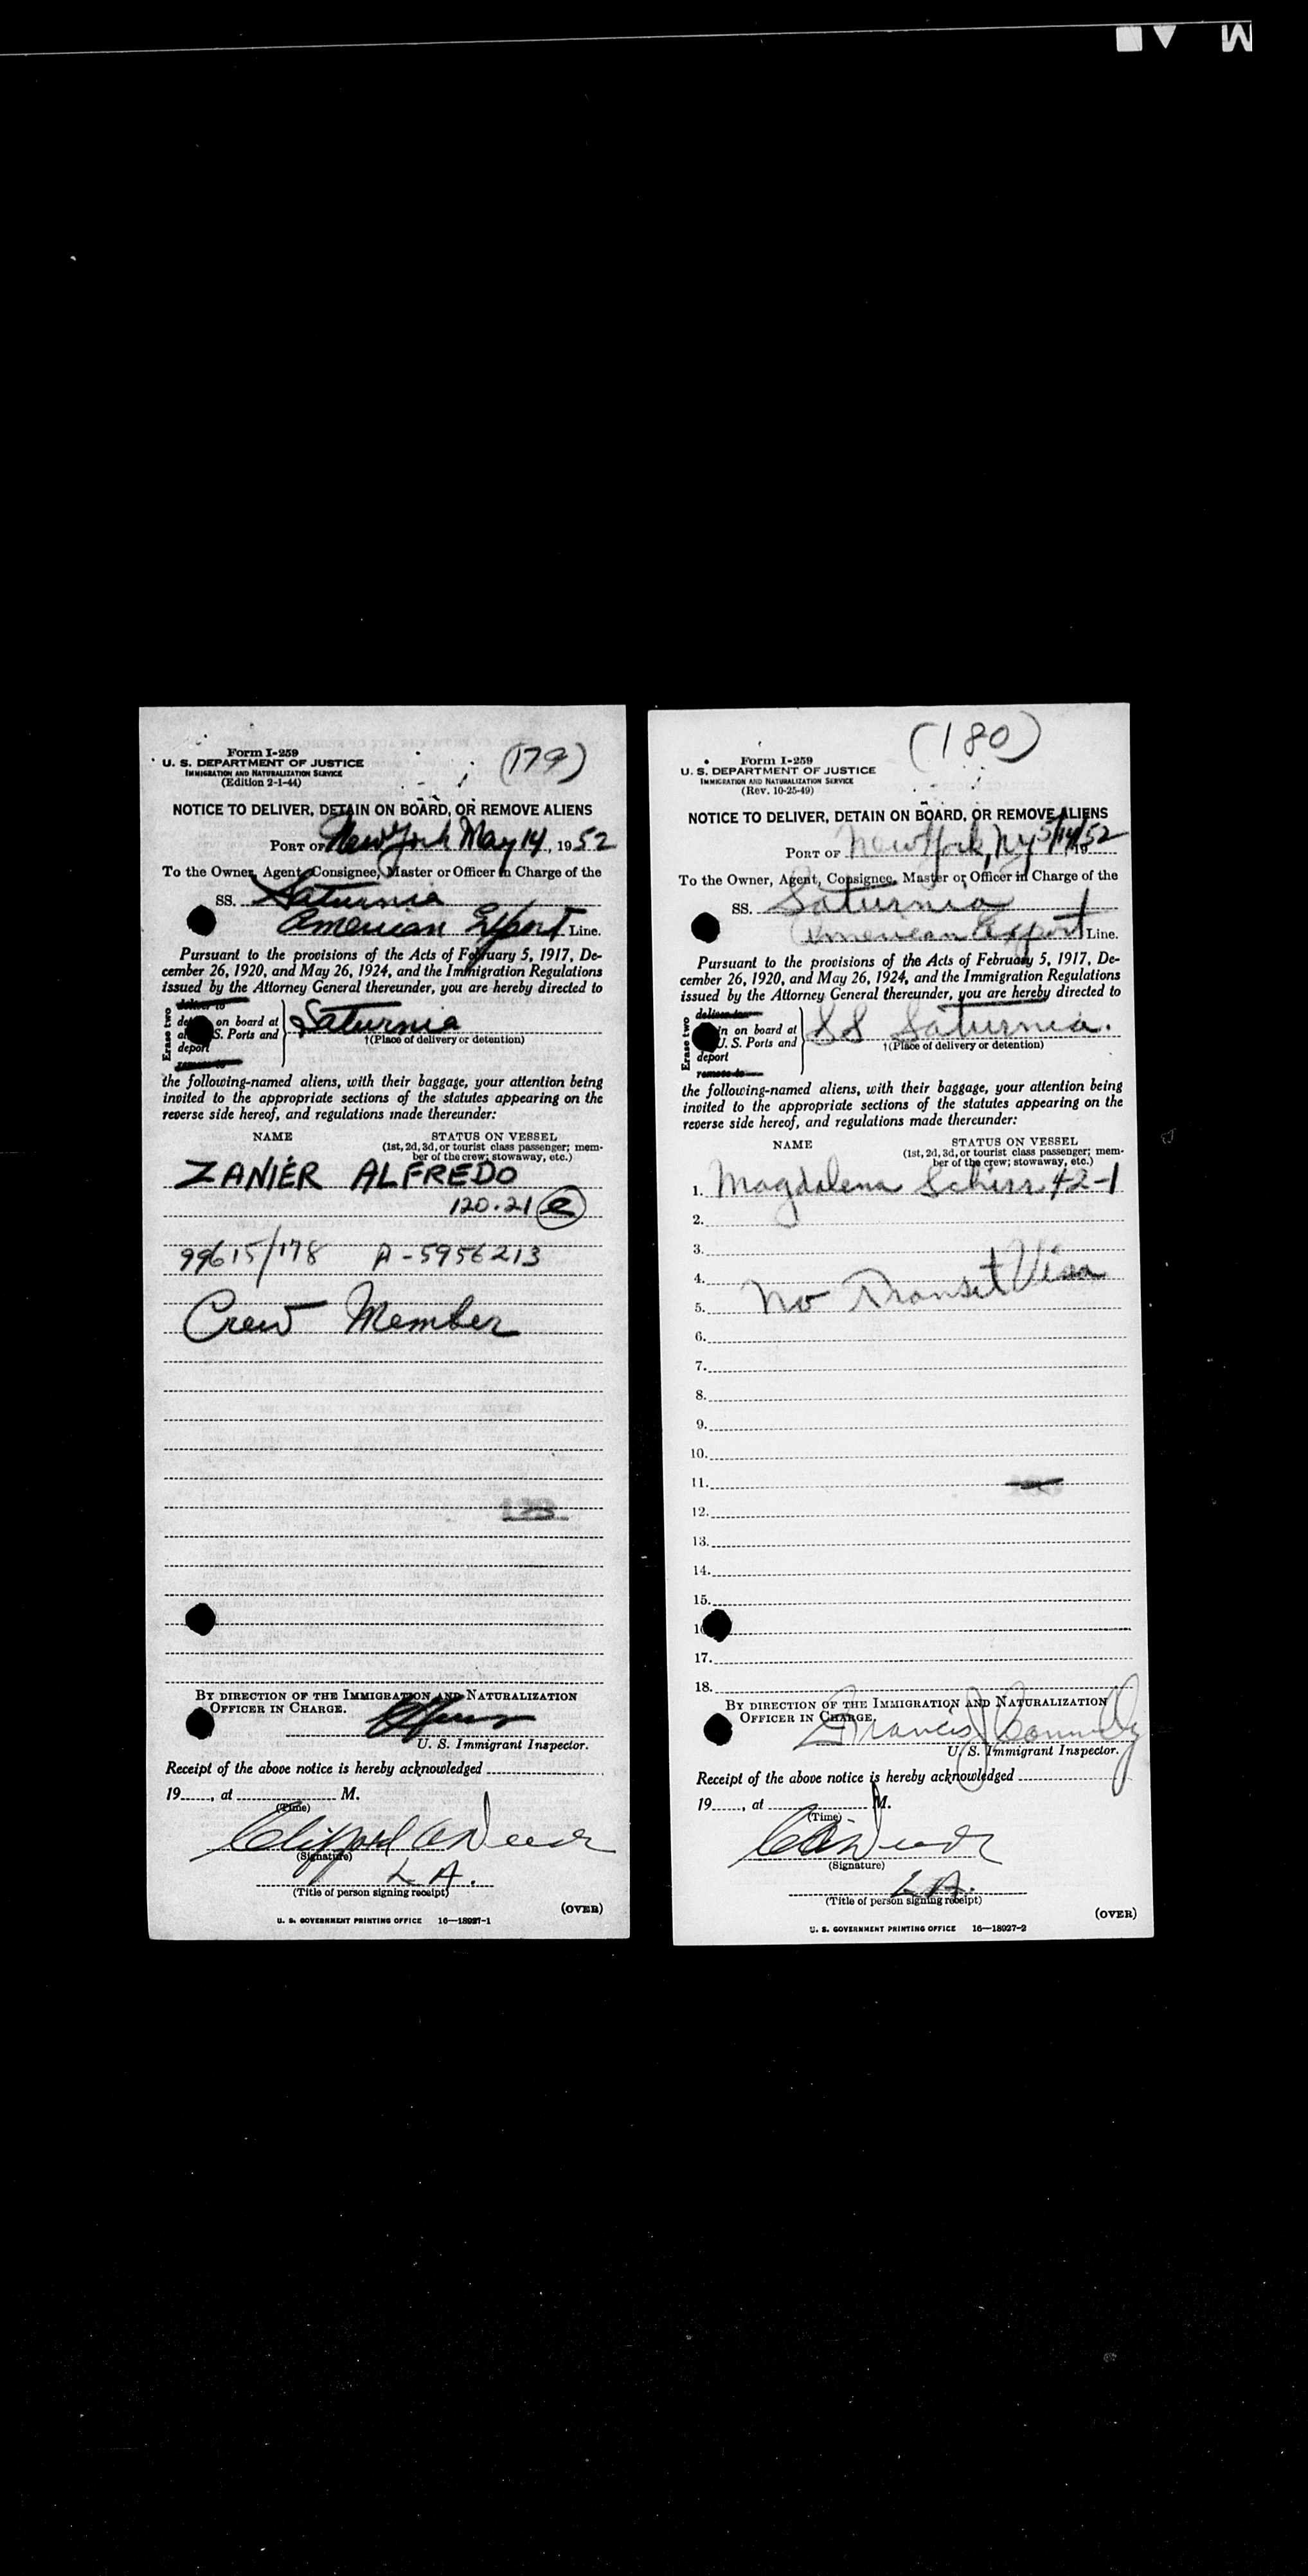 Form I-259
U. S. DEPARTMENT OF JUSTICE
IMMIGRATION AND NATURALIZATION SERVICE
(Edition 2-1-44)
(179)
NOTICE TO DELIVER, DETAIN ON BOARD, OR REMOVE ALIENS
PORT OF New York May 14, 1952
To the Owner, Agent, Consignee, Master or Officer in Charge of the
SS. Saturnia
American Export Line.
Pursuant to the provisions of the Acts of February 5, 1917, De-
cember 26, 1920, and May 26, 1924, and the Immigration Regulations
issued by the Attorney General thereunder, you are hereby directed to
Erase two
deliver to
on board at
S. Ports and
deport
remove to
Saturnia
†(Place of delivery or detention)
the following-named aliens, with their baggage, your attention being
invited to the appropriate sections of the statutes appearing on the
reverse side hereof, and regulations made thereunder:
NAME STATUS ON VESSEL
(1st, 2d, 3d, or tourist class passenger; mem-
ber of the crew; stowaway, etc.)
ZANIER ALFREDO
120.21 e
99615/178 A-5956213
Crew Member
BY DIRECTION OF THE IMMIGRATION AND NATURALIZATION
OFFICER IN CHARGE.
U. S. Immigrant Inspector.
Receipt of the above notice is hereby acknowledged
19____, at ________ M.
(Time)
Clifford
(Signature)
L A.
(Title of person signing receipt)
(OVER)
U. S. GOVERNMENT PRINTING OFFICE 16—18927-1
(180)
Form I-259
U. S. DEPARTMENT OF JUSTICE
IMMIGRATION AND NATURALIZATION SERVICE
(Rev. 10-25-49)
NOTICE TO DELIVER, DETAIN ON BOARD, OR REMOVE ALIENS
PORT OF New York, NY 5/14/52 19
To the Owner, Agent, Consignee, Master or Officer in Charge of the
SS. Saturnia
American Export Line.
Pursuant to the provisions of the Acts of February 5, 1917, De-
cember 26, 1920, and May 26, 1924, and the Immigration Regulations
issued by the Attorney General thereunder, you are hereby directed to
Erase two
deliver to
in on board at
U. S. Ports and
deport
remove to
SS Saturnia.
†(Place of delivery or detention)
the following-named aliens, with their baggage, your attention being
invited to the appropriate sections of the statutes appearing on the
reverse side hereof, and regulations made thereunder:
NAME STATUS ON VESSEL
(1st, 2d, 3d, or tourist class passenger; mem-
ber of the crew; stowaway, etc.)
1. Magdalena Schirr 42-1
2.
3.
4.
5. No Transit Visa
6.
7.
8.
9.
10.
11.
12.
13.
14.
15.
17.
18.
BY DIRECTION OF THE IMMIGRATION AND NATURALIZATION
OFFICER IN CHARGE.
Francis J Connolly
U. S. Immigrant Inspector.
Receipt of the above notice is hereby acknowledged
19____, at ________ M.
(Time)
(Signature)
L A.
(Title of person signing receipt)
(OVER)
U. S. GOVERNMENT PRINTING OFFICE 16—18927-2